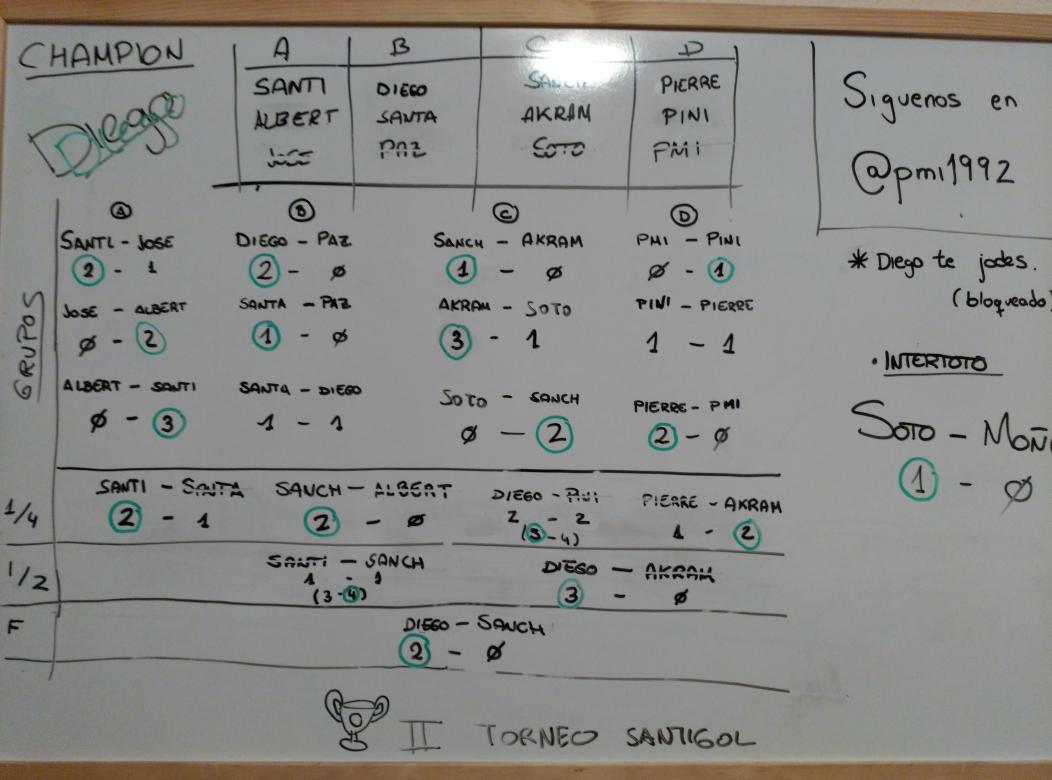 CHAMPION
Diego
A B C D
SANTI DIEGO SANCH PIERRE
ALBERT SANTA AKRAM PINI
JOSE PAZ SOTO PMI
GRUPOS
A B C D
SANTI - JOSE DIEGO - PAZ SANCH - AKRAM PMI - PINI
2 - 1 2 - Ø 1 - Ø Ø - 1
JOSE - ALBERT SANTA - PAZ AKRAM - SOTO PINI - PIERRE
Ø - 2 1 - Ø 3 - 1 1 - 1
ALBERT - SANTI SANTA - DIEGO SOTO - SANCH PIERRE - PMI
Ø - 3 1 - 1 Ø - 2 2 - Ø
1/4 SANTI - SANTA SANCH - ALBERT DIEGO - PINI PIERRE - AKRAM
2 - 1 2 - Ø 2 - 2 1 - 2
(3-4)
1/2 SANTI - SANCH DIEGO - AKRAM
1 - 1 3 - Ø
(3-4)
F DIEGO - SANCH
2 - Ø
II TORNEO SANTIGOL
Siguenos en
@pmi1992
* Diego te jodes.
(bloqueado)
• INTERTOTO
SOTO - MOÑI
1 - Ø